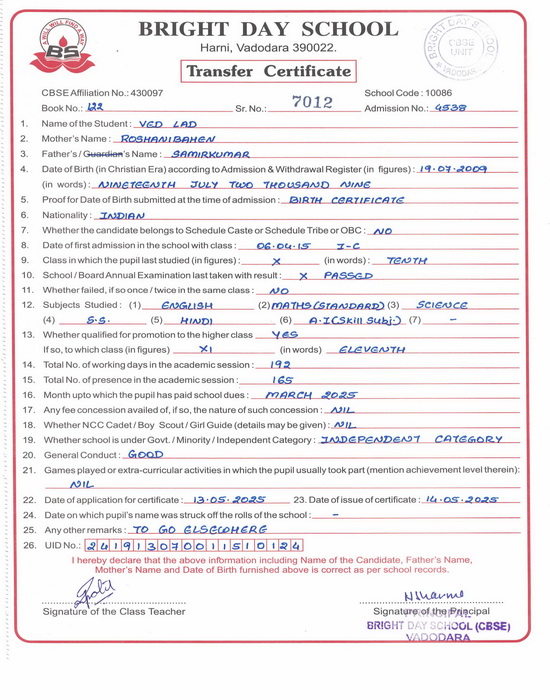 A WILL WILL FIND A WAY
BS
BRIGHT DAY SCHOOL
Harni, Vadodara 390022.
Transfer Certificate
BRIGHT DAY SCHOOL
CBSE
UNIT
VADODARA
CBSE Affiliation No.: 430097 School Code : 10086
Book No.: 122 Sr. No.: 7012 Admission No.: 4538
1. Name of the Student : VED LAD
2. Mother's Name : ROSHANIBAHEN
3. Father's / Guardian's Name : SAMIRKUMAR
4. Date of Birth (in Christian Era) according to Admission & Withdrawal Register (in figures) : 19.07.2009
(in words) : NINETEENTH JULY TWO THOUSAND NINE
5. Proof for Date of Birth submitted at the time of admission : BIRTH CERTIFICATE
6. Nationality : INDIAN
7. Whether the candidate belongs to Schedule Caste or Schedule Tribe or OBC : NO
8. Date of first admission in the school with class : 06.04.15 I-C
9. Class in which the pupil last studied (in figures) : X (in words) : TENTH
10. School / Board Annual Examination last taken with result : X PASSED
11. Whether failed, if so once / twice in the same class : NO
12. Subjects Studied : (1) ENGLISH (2) MATHS (STANDARD) (3) SCIENCE
(4) S.S. (5) HINDI (6) A.I (Skill Subj.) (7) -
13. Whether qualified for promotion to the higher class YES
If so, to which class (in figures) XI (in words) ELEVENTH
14. Total No. of working days in the academic session : 192
15. Total No. of presence in the academic session : 165
16. Month upto which the pupil has paid school dues : MARCH 2025
17. Any fee concession availed of, if so, the nature of such concession : NIL
18. Whether NCC Cadet / Boy Scout / Girl Guide (details may be given) : NIL
19. Whether school is under Govt. / Minority / Independent Category : INDEPENDENT CATEGORY
20. General Conduct : GOOD
21. Games played or extra-curricular activities in which the pupil usually took part (mention achievement level therein):
NIL
22. Date of application for certificate : 13.05.2025 23. Date of issue of certificate : 14.05.2025
24. Date on which pupil's name was struck off the rolls of the school : -
25. Any other remarks : TO GO ELSEWHERE
26. UID No.: 241913070011510124
I hereby declare that the above information including Name of the Candidate, Father's Name,
Mother's Name and Date of Birth furnished above is correct as per school records.
Signature of the Class Teacher Signature of the Principal
PRINCIPAL
BRIGHT DAY SCHOOL (CBSE)
VADODARA